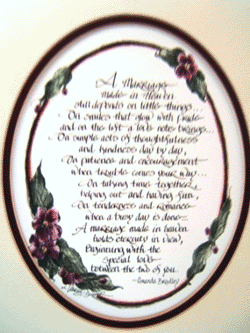 A Marriage
made in Heaven
still depends on little things...
On smiles that glow with pride
and on the lift a love note brings...
On simple acts of thoughtfulness
and kindness day by day,
On patience and encouragement
when trouble comes your way...
On taking time together,
helping out and having fun
On tenderness and romance
when a busy day is done.
A marriage made in heaven
holds eternity in view,
Beginning with the
special love
between the two of you.
-Amanda Bradley